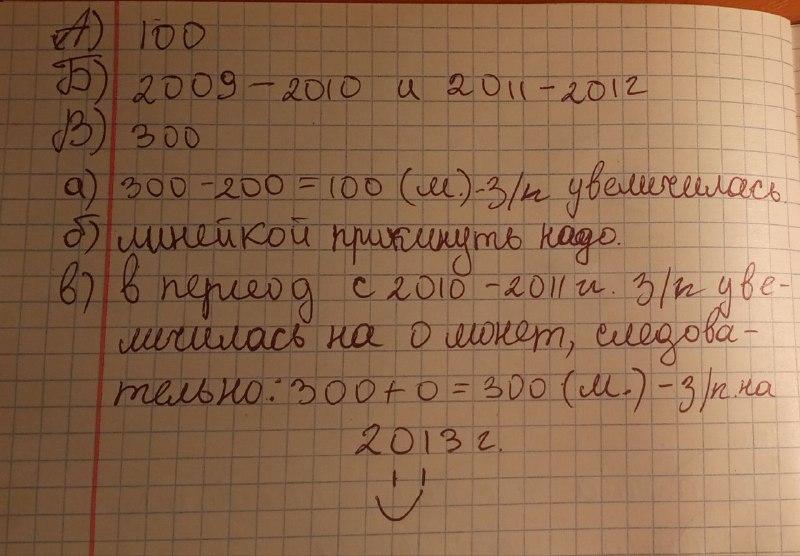 А) 100
Б) 2009-2010 и 2011-2012
В) 300
а) 300-200=100 (м.)-З/п увеличилась
б) линейкой прикинуть надо.
в) в период с 2010-2011 гг. З/п уве-
личилась на 0 монет, следова-
тельно: 300+0=300 (м.)-З/п на
2013 г.